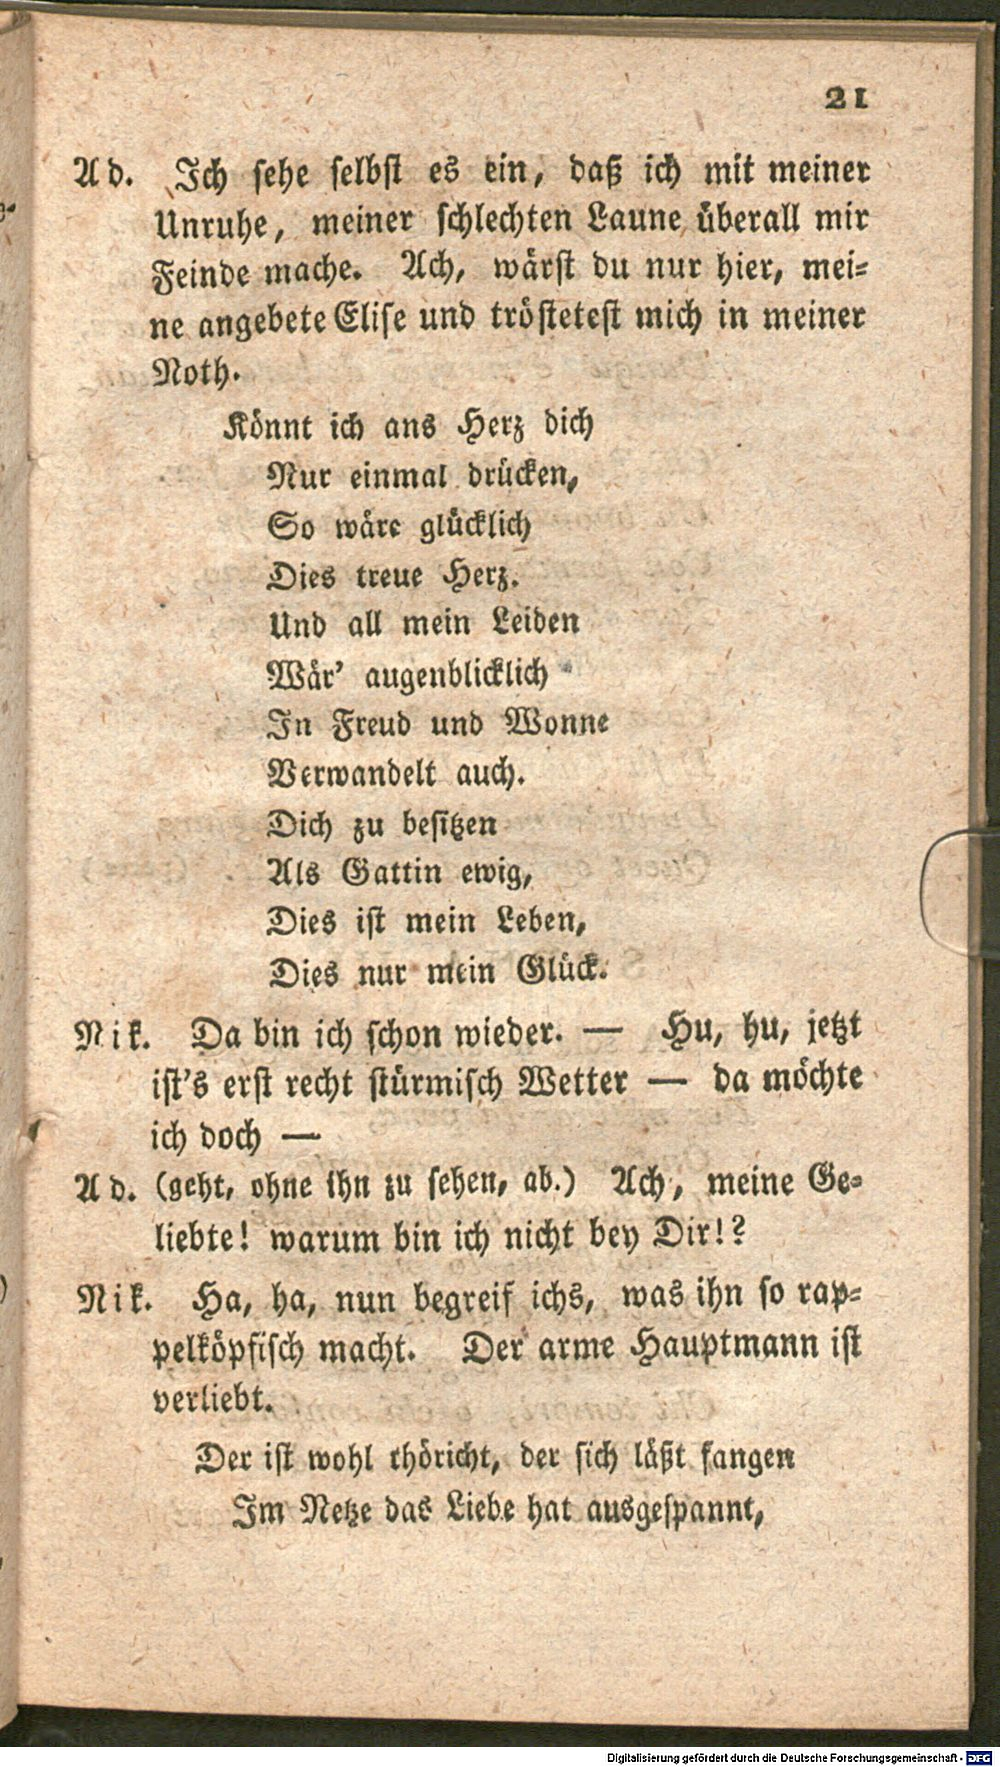 21
Ad. Ich sehe selbst es ein, daß ich mit meiner
Unruhe, meiner schlechten Laune überall mir
Feinde mache. Ach, wärst du nur hier, mei=
ne angebete Elise und tröstetest mich in meiner
Noth.
Könnt ich ans Herz dich
Nur einmal drücken,
So wäre glücklich
Dies treue Herz.
Und all mein Leiden
Wär' augenblicklich
In Freud und Wonne
Verwandelt auch.
Dich zu besitzen
Als Gattin ewig,
Dies ist mein Leben,
Dies nur mein Glück.
Nik. Da bin ich schon wieder. — Hu, hu, jetzt
ist's erst recht stürmisch Wetter — da möchte
ich doch —
Ad. (geht, ohne ihn zu sehen, ab.) Ach, meine Ge=
liebte! warum bin ich nicht bey Dir!?
Nik. Ha, ha, nun begreif ichs, was ihn so rap=
pelköpfisch macht. Der arme Hauptmann ist
verliebt.
Der ist wohl thöricht, der sich läßt fangen
Im Netze das Liebe hat ausgespannt,
Digitalisierung gefördert durch die Deutsche Forschungsgemeinschaft - DFG